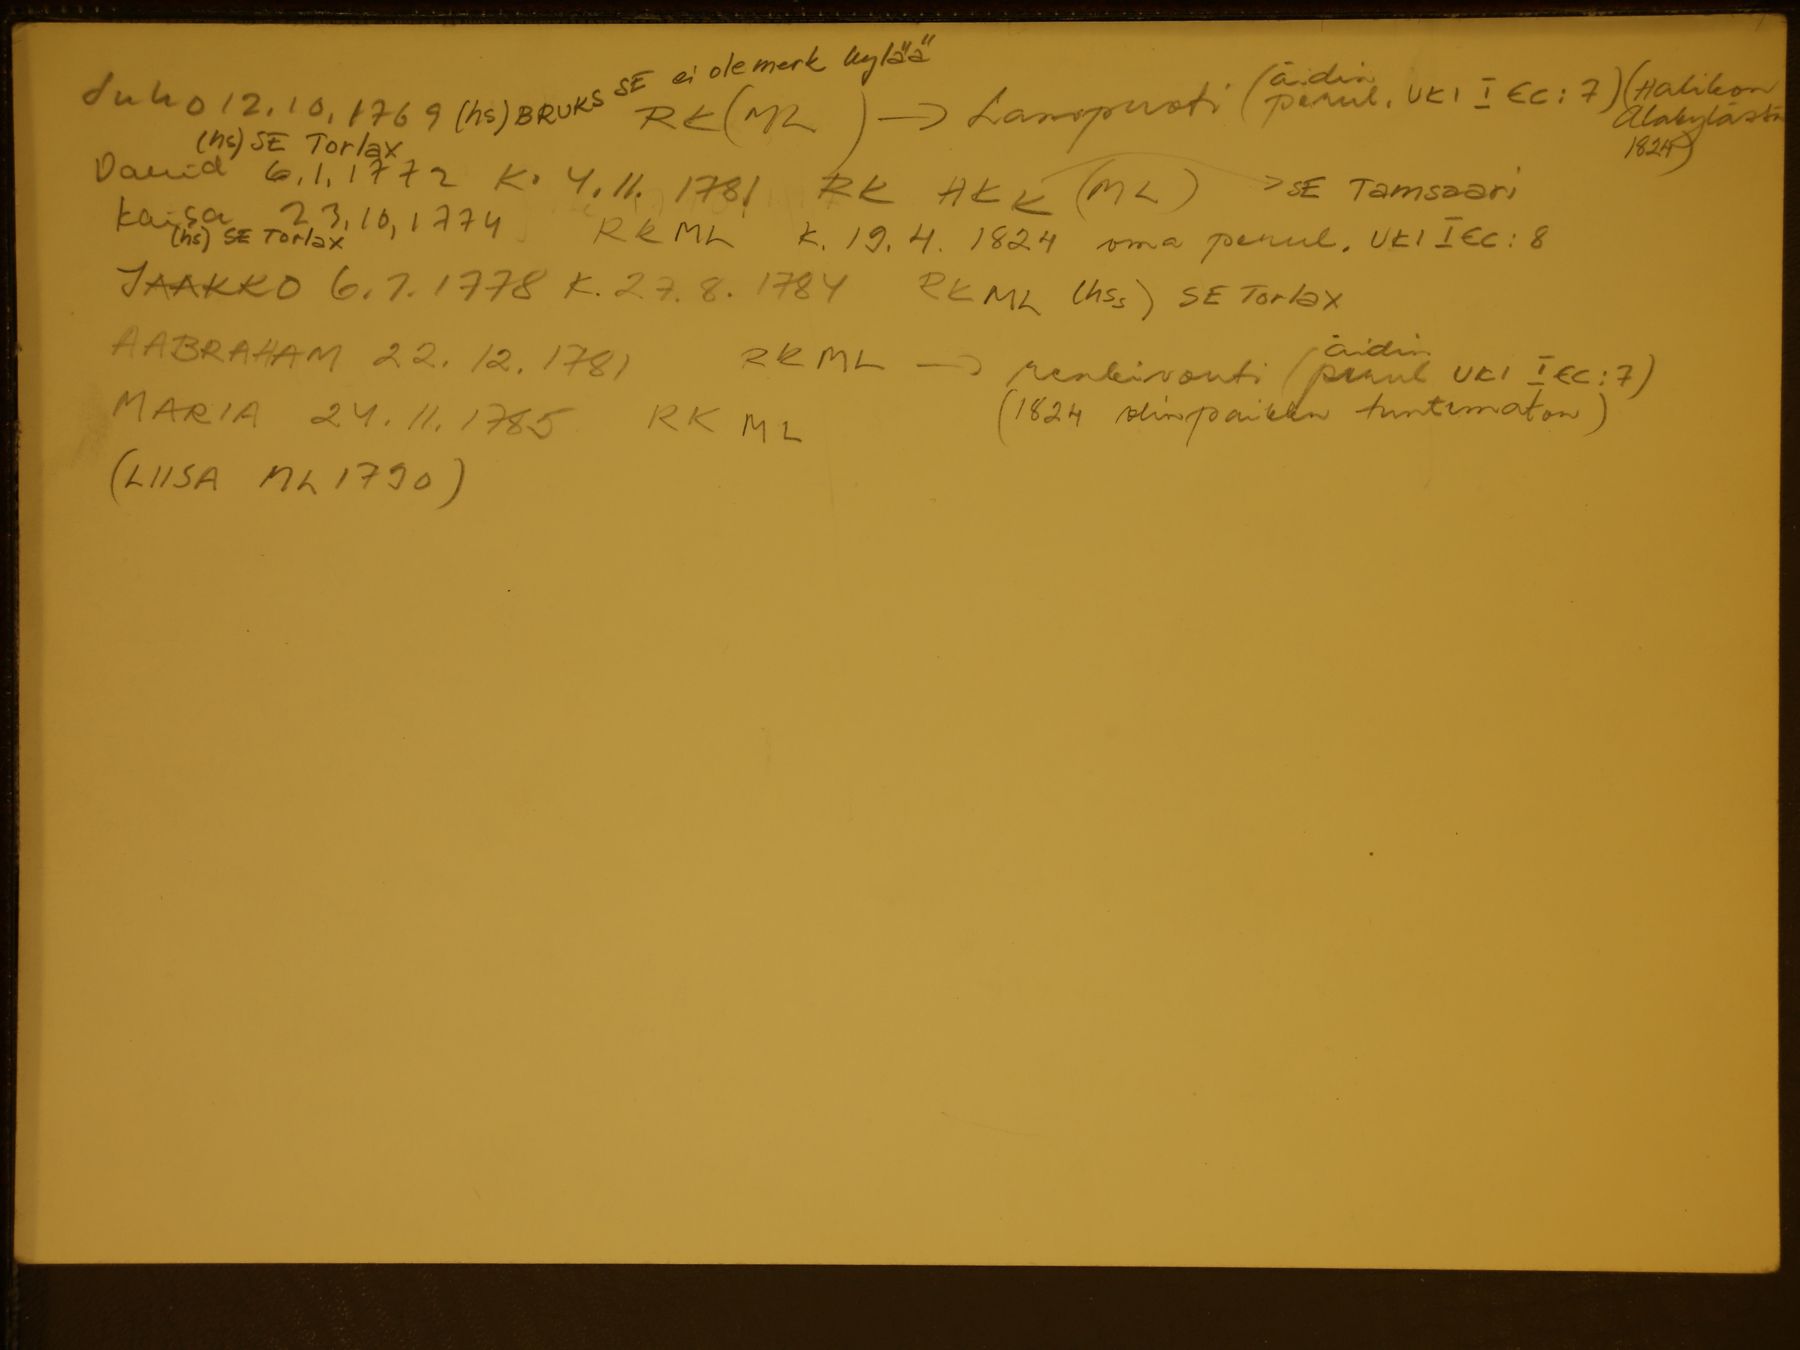 Juho 12.10.1769 (hs) BRUKS SE ei ole merk kylää RK (ML) → Lampuoti (äidin perul. UKI I EC:7) (Halikon Alakylästä 1824)
(hs) SE Torlax
David 6.1.1772 K. 4.11.1781 RK HKK (ML) → SE Tamsaari
Kaisa 23.10.1774 RK ML K. 19.4.1824 oma perul. UKI I EC:8
(hs) SE Torlax
JAAKKO 6.7.1778 K. 27.8.1784 RK ML (hss) SE Torlax
AABRAHAM 22.12.1781 RK ML → renkivouti (äidin perul UKI I EC:7)
MARIA 24.11.1785 RK ML (1824 olinpaikka tuntematon)
(LIISA ML 1790)